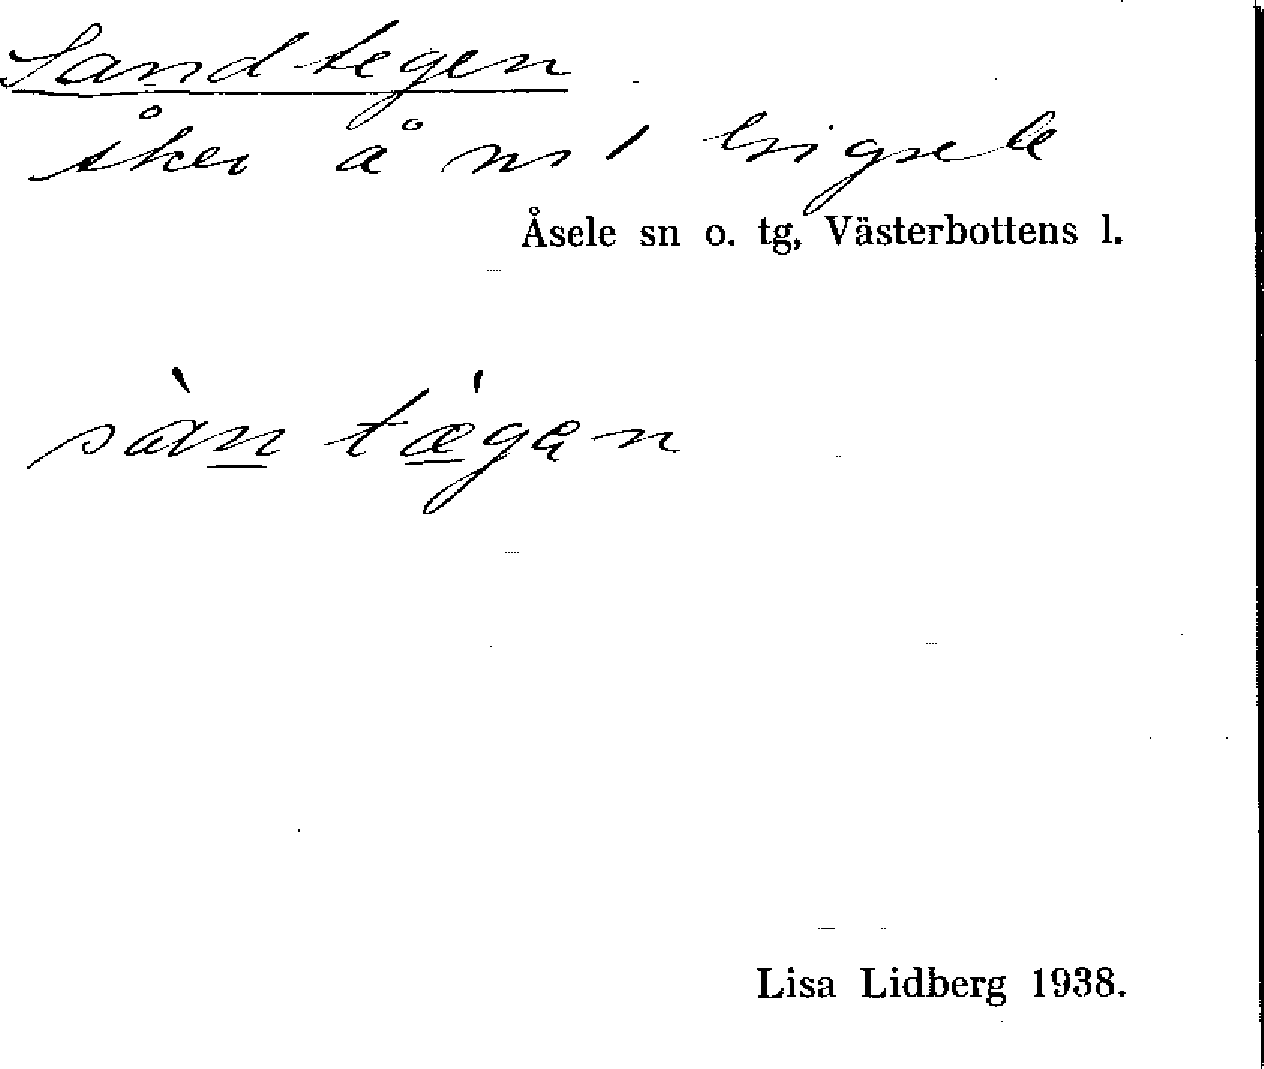 Sand-tegen
åker å nr 1 Insjsele
Åsele sn o. tg, Västerbottens l.
sàn tǽgen
Lisa Lidberg 1938.